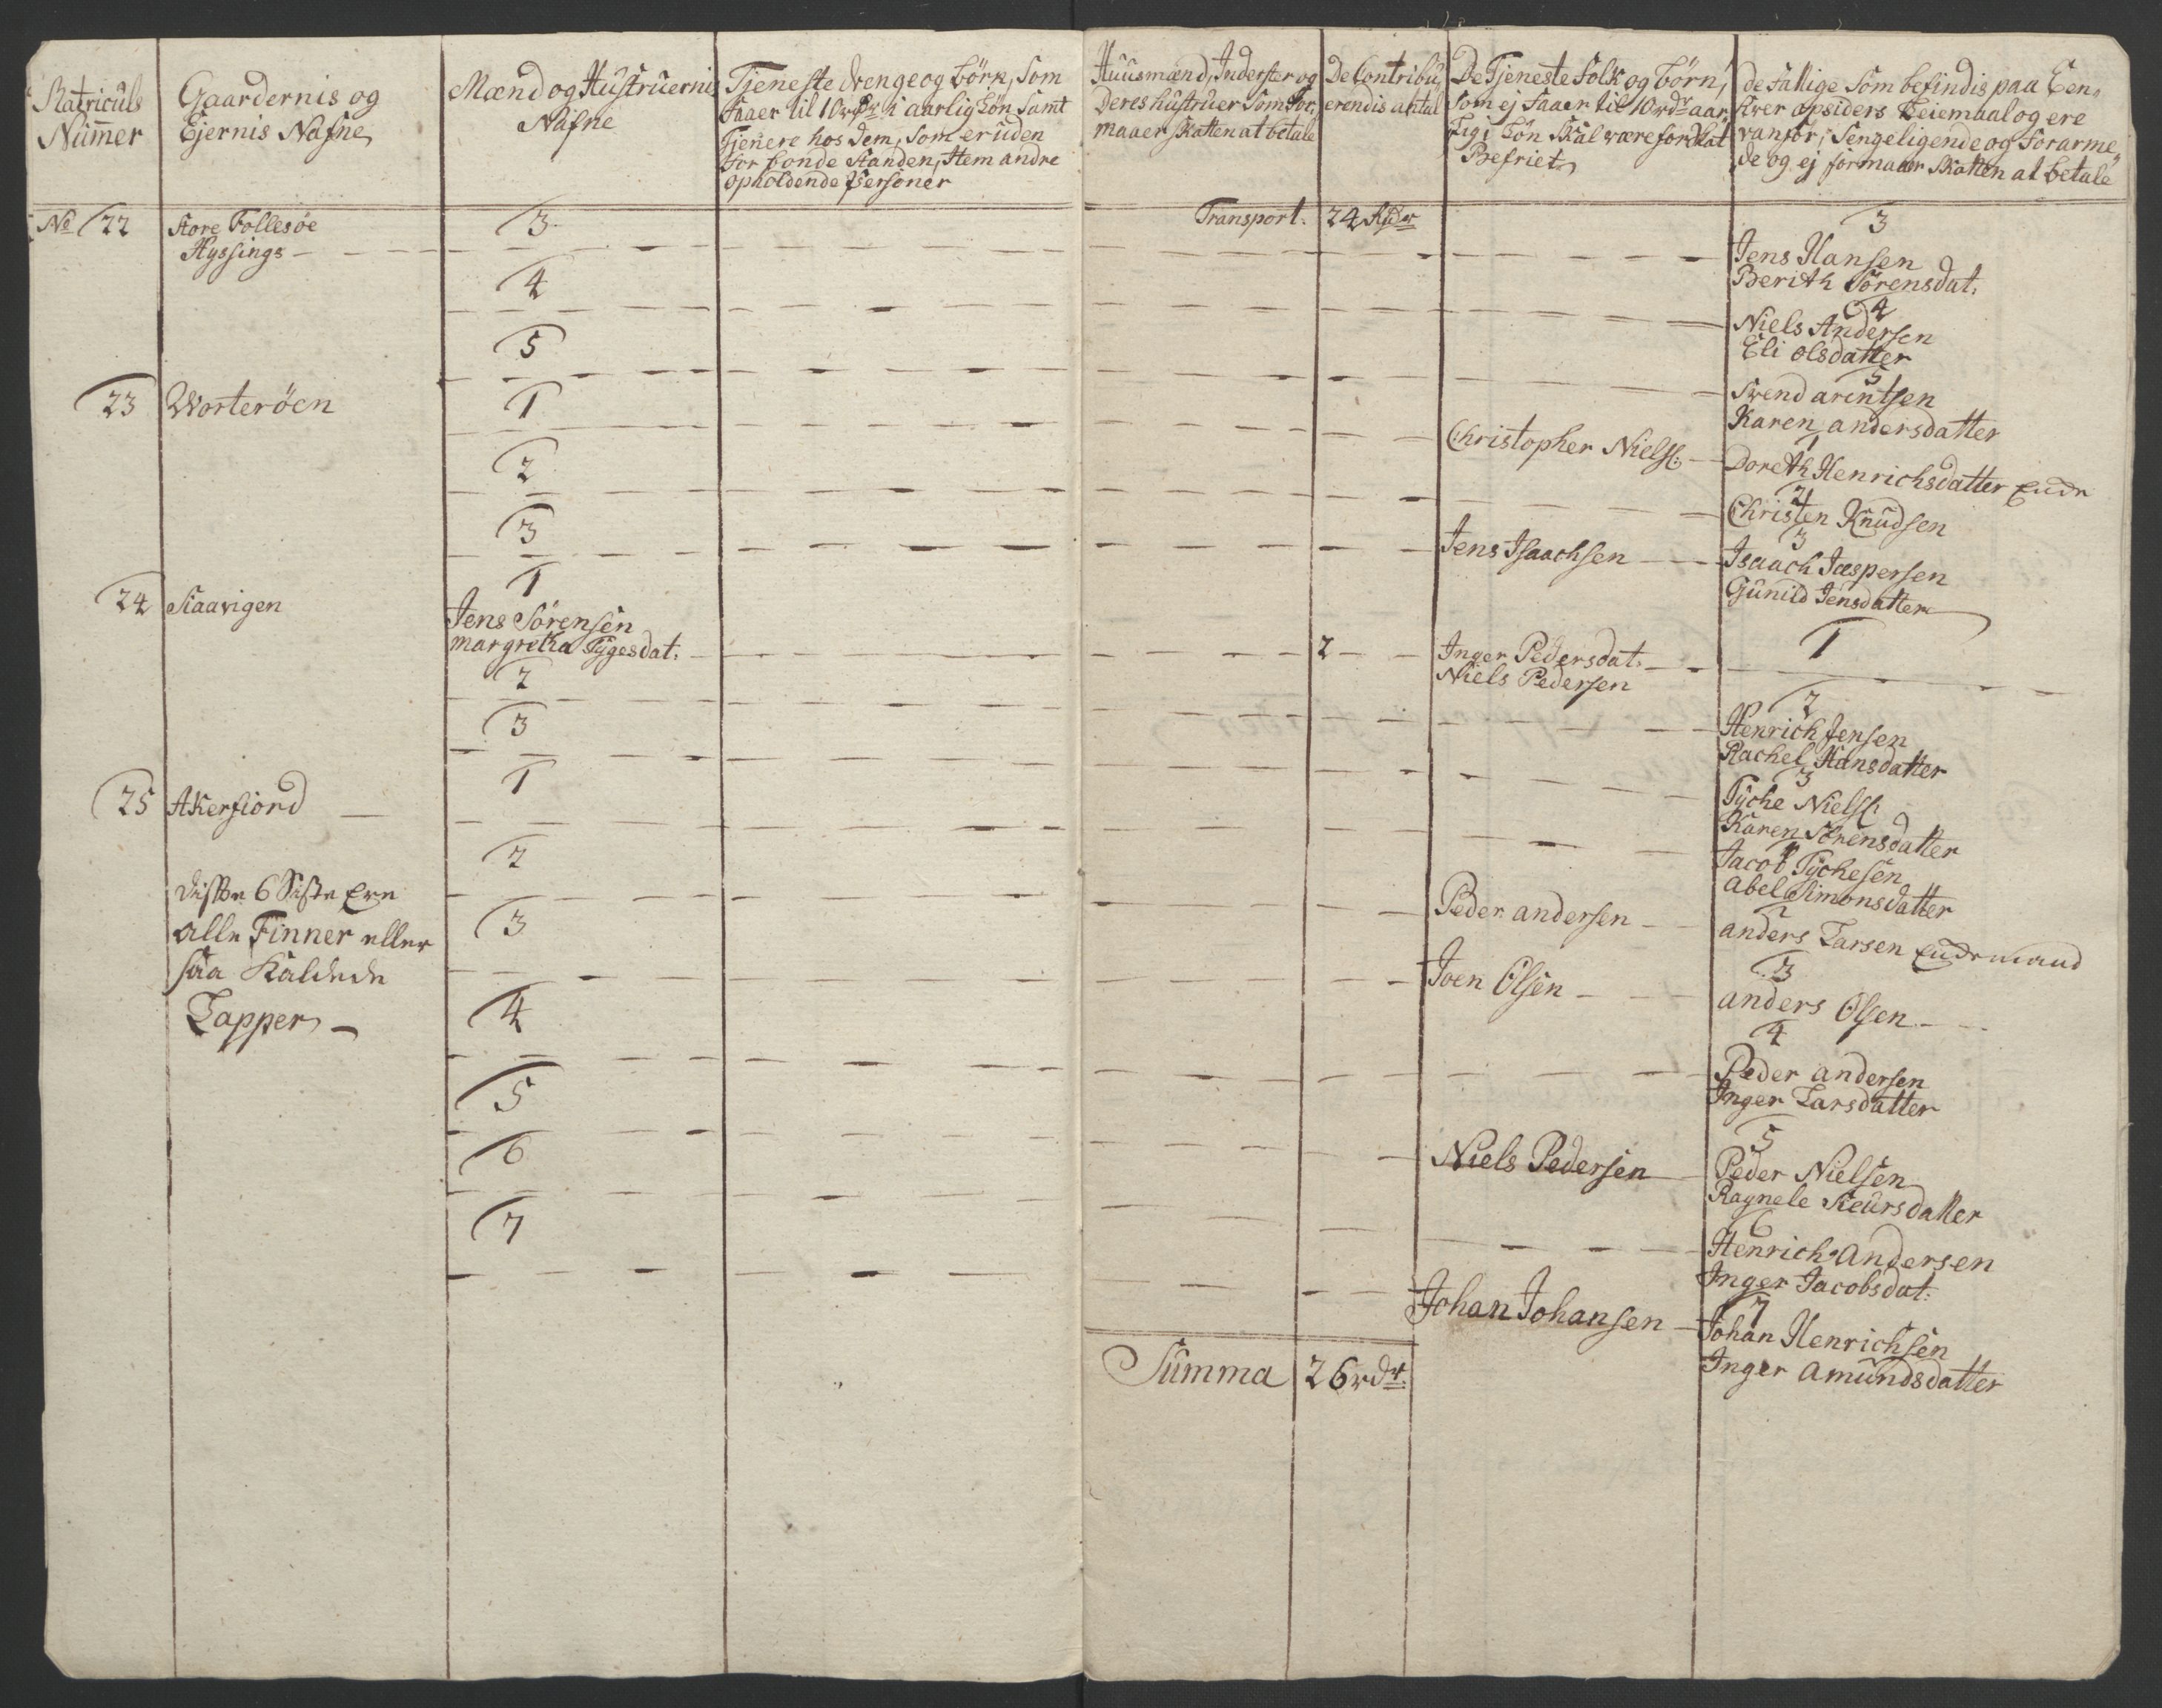 Matriculs
Nummer
Gaardernis og
Ejernis Nafne
Mænd og Hustruernis
Nafne
Tjeneste drenge og börn, Som
Faaer til 10 rdr i aarlig Lön Samt
Tjenere hos dem, Som er uden
for bonde Standen, Item andre
opholdende Personer
Huusmænd, Inderster og
Deres hustruer Som For,,
maaer Skatten at betale
De Contribu,,
erendis antal
De Tjeneste Folk og börn,
Som ej Faaer til 10 rdr aar,,
lig i Lön Skal være for Skat
Befriet
de Fattige Som befindis paa Een,,
hver opsiders Leiemaal og ere
vanför, Sengeligende og Forarme,,
de og ej formaaer Skatten at betale
No 22
Store Follesöe
Hyssings
3
Transport.
24 Rdr
3
Jens Hansen
Berith Sörensdat.
4
4
Niels Andersen
Eli olsdatter
5
5
Svend arentsen
Karen andersdatter
23
Worteröen
1
Christopher Niels:
1
Doreth Henrichsdatter Enke
2
2
Christen Knudsen
3
Jens Isaachsen
3
Isaach Jaspersen
Gunild Jensdatter
24
Staavigen
1
Jens Sörensen
margretha Tygesdat.
2
Inger Pedersdat.
Niels Pedersen
1
2
2
Henrich Jensen
Rachel Hansdatter
3
3
Tyche Niels:
Karen Sörensdatter
25
Akerfiord
1
1
Jacob Tychesen
abel Simonsdatter
2
Peder andersen
2
anders Larsen Enkemand
disse 6 Siste ere
alle Finner eller
saa Kaldede
Lapper
3
Joen Olsen
3
anders Olsen
4
4
Peder andersen
Inger Larsdatter
5
Niels Pedersen
5
Peder Nielsen
Ragnele
6
6
Henrich Andersen
Inger Jacobsdat.
7
Johan Johansen
7
Johan Henrichsen
Inger Amundsdatter
Summa
26 rdr.